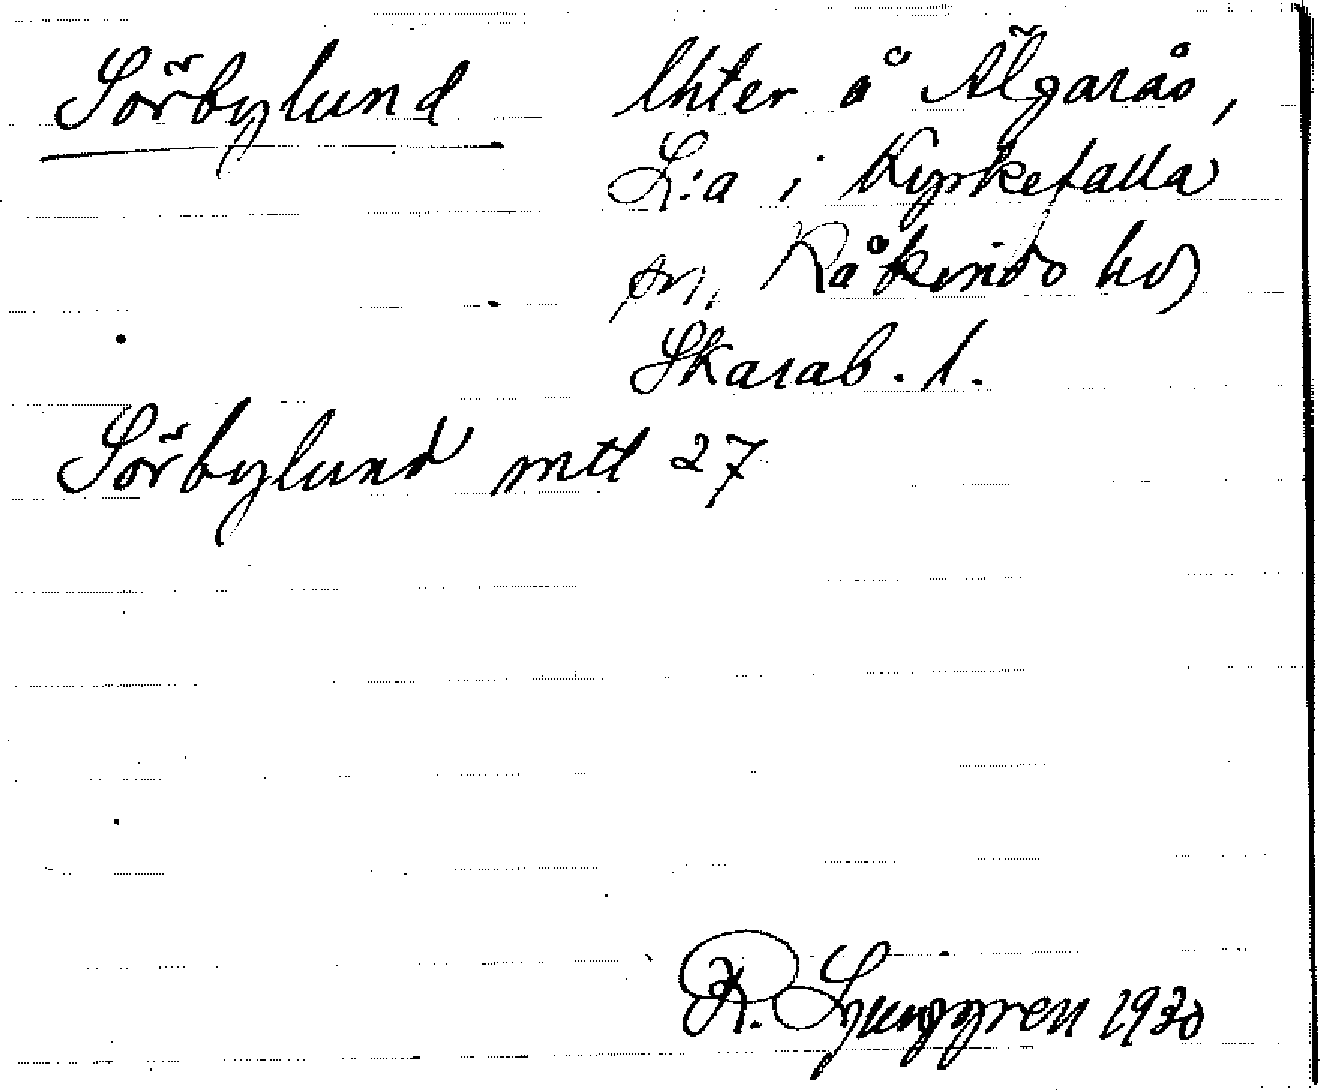 Sörbylund
Lht er å Älgarås,
L:a i Kyrkefalla
sn, Kåkinds hd,
Skarab. l.
Sörbylund mtl 27
R. Ljunggren 1930